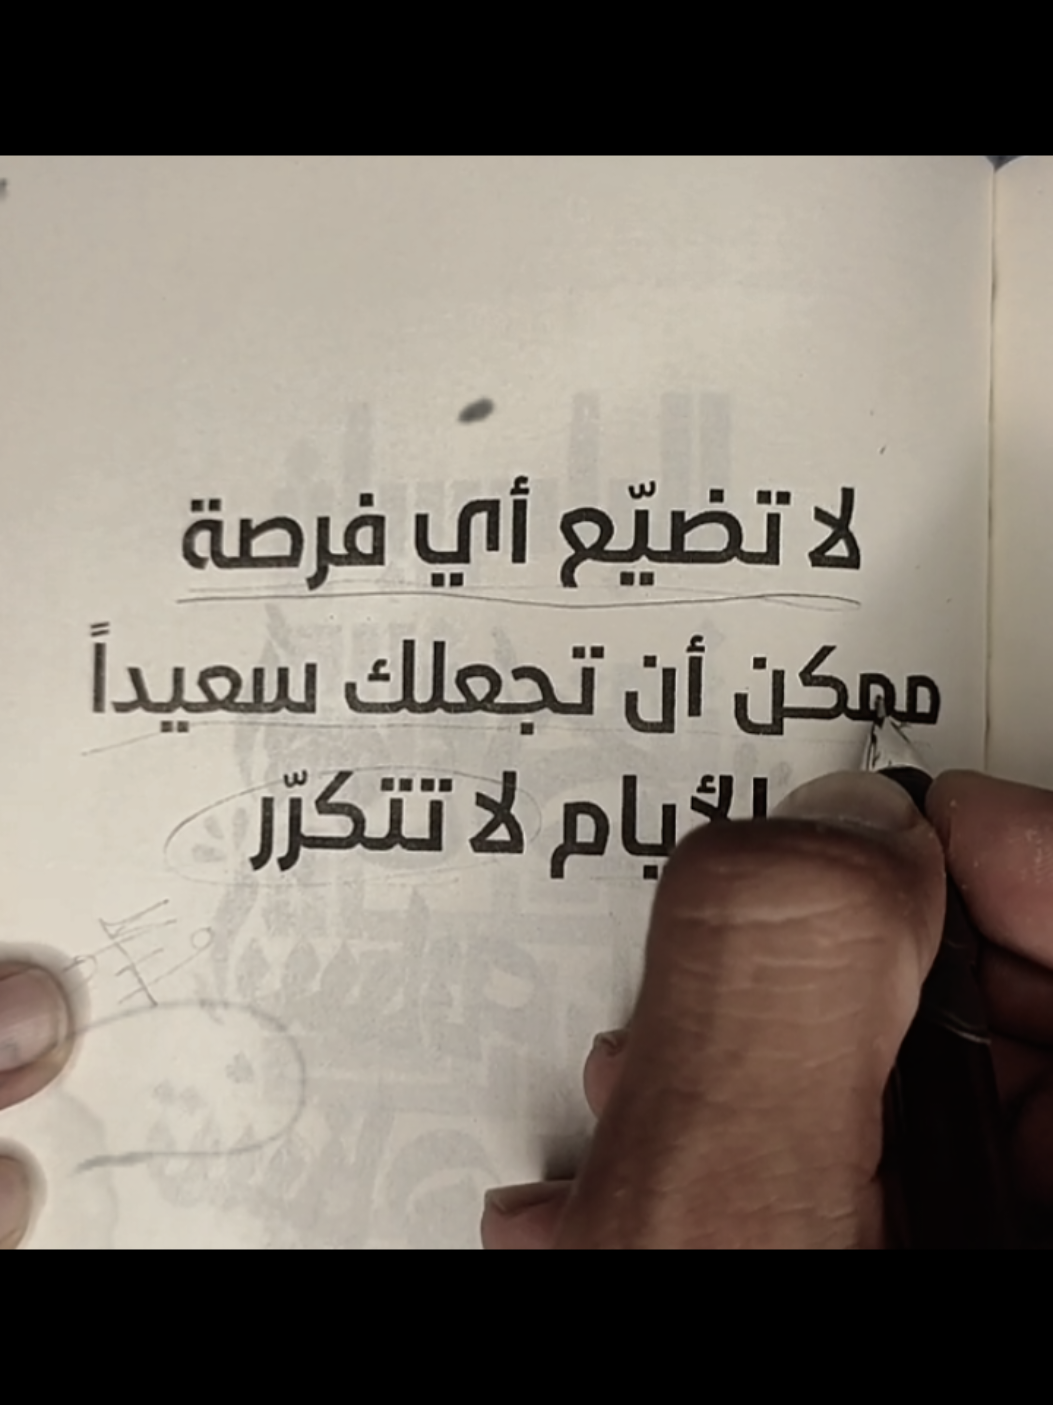 لا تضيّع أي فرصة
ممكن أن تجعلك سعيداً
الأيام لا تتكرّر